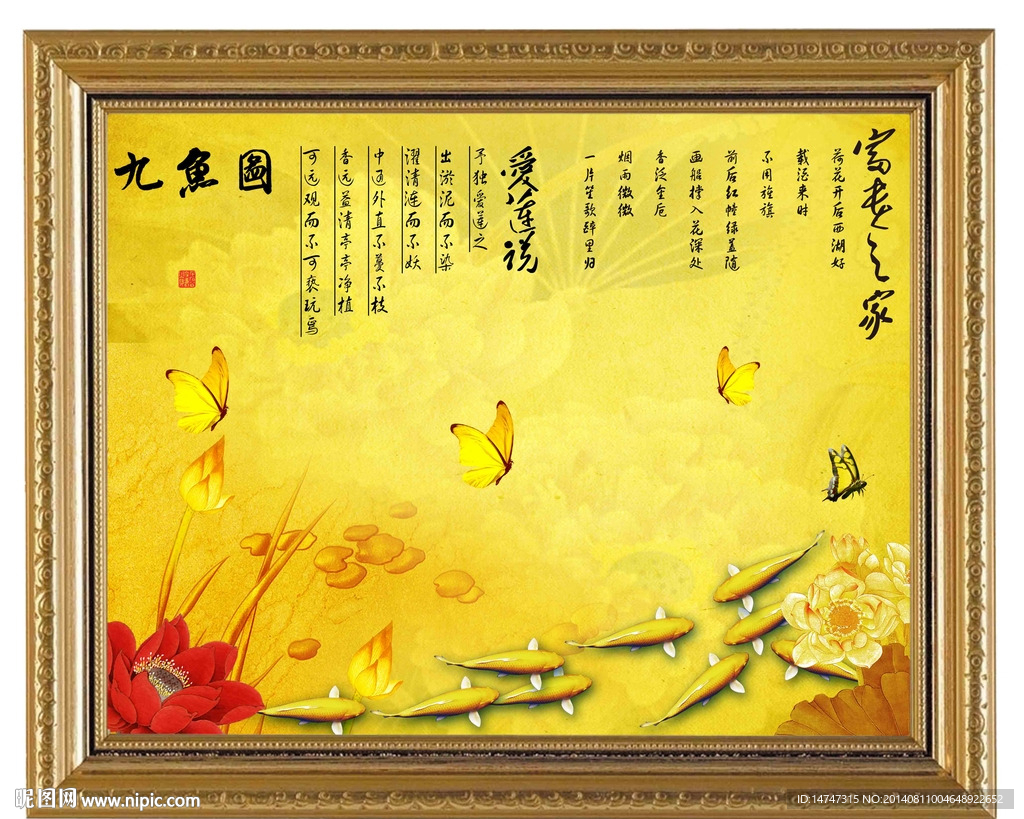 富贵之家
荷花开后西湖好
载酒来时
不用旌旗
前后红幢绿盖随
画船撑入花深处
香泛金卮
烟雨微微
一片笙歌醉里归
爱莲说
予独爱莲之
出淤泥而不染
濯清涟而不妖
中通外直不蔓不枝
香远益清亭亭净植
可远观而不可亵玩焉
九鱼图
昵图网 www.nipic.com
ID:14747315 NO:20140811004648922652